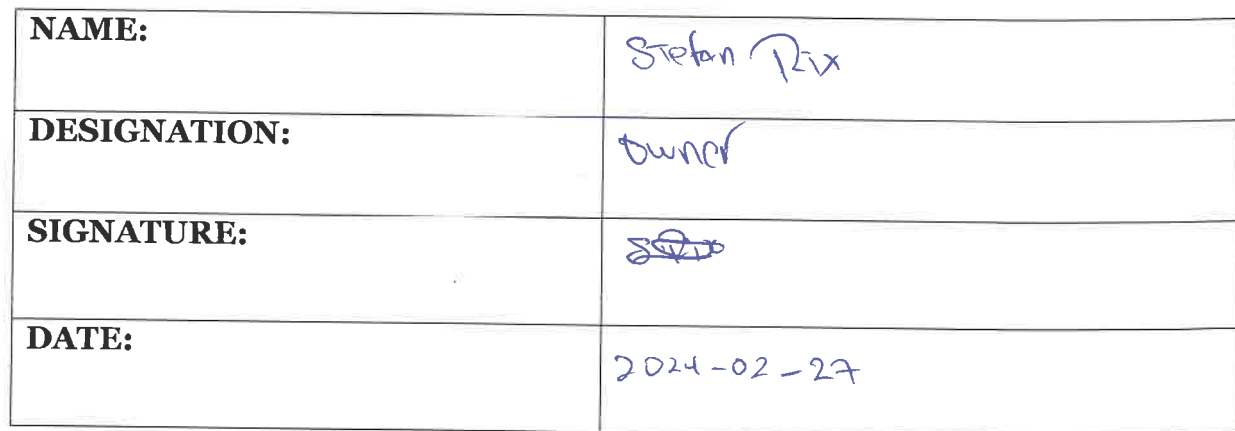 NAME:
Stefan Rix
DESIGNATION:
owner
SIGNATURE:
DATE:
2024-02-27